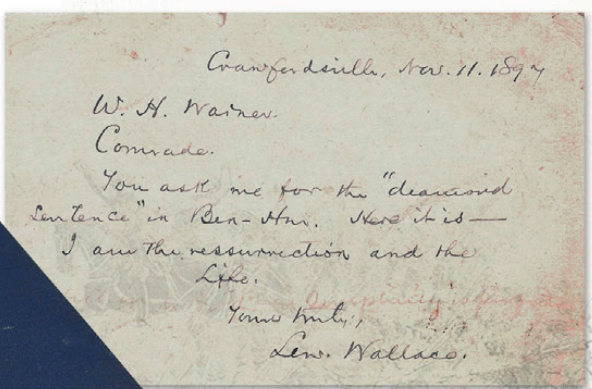 Crawfordsville, Nov. 11. 1897
W. H. Wainer.
Comrade.
You ask me for the "deamond
Sentence" in Ben-Hur. Here it is —
I am the ressurrection and the
Life.
Yours truly,
Lew. Wallace.